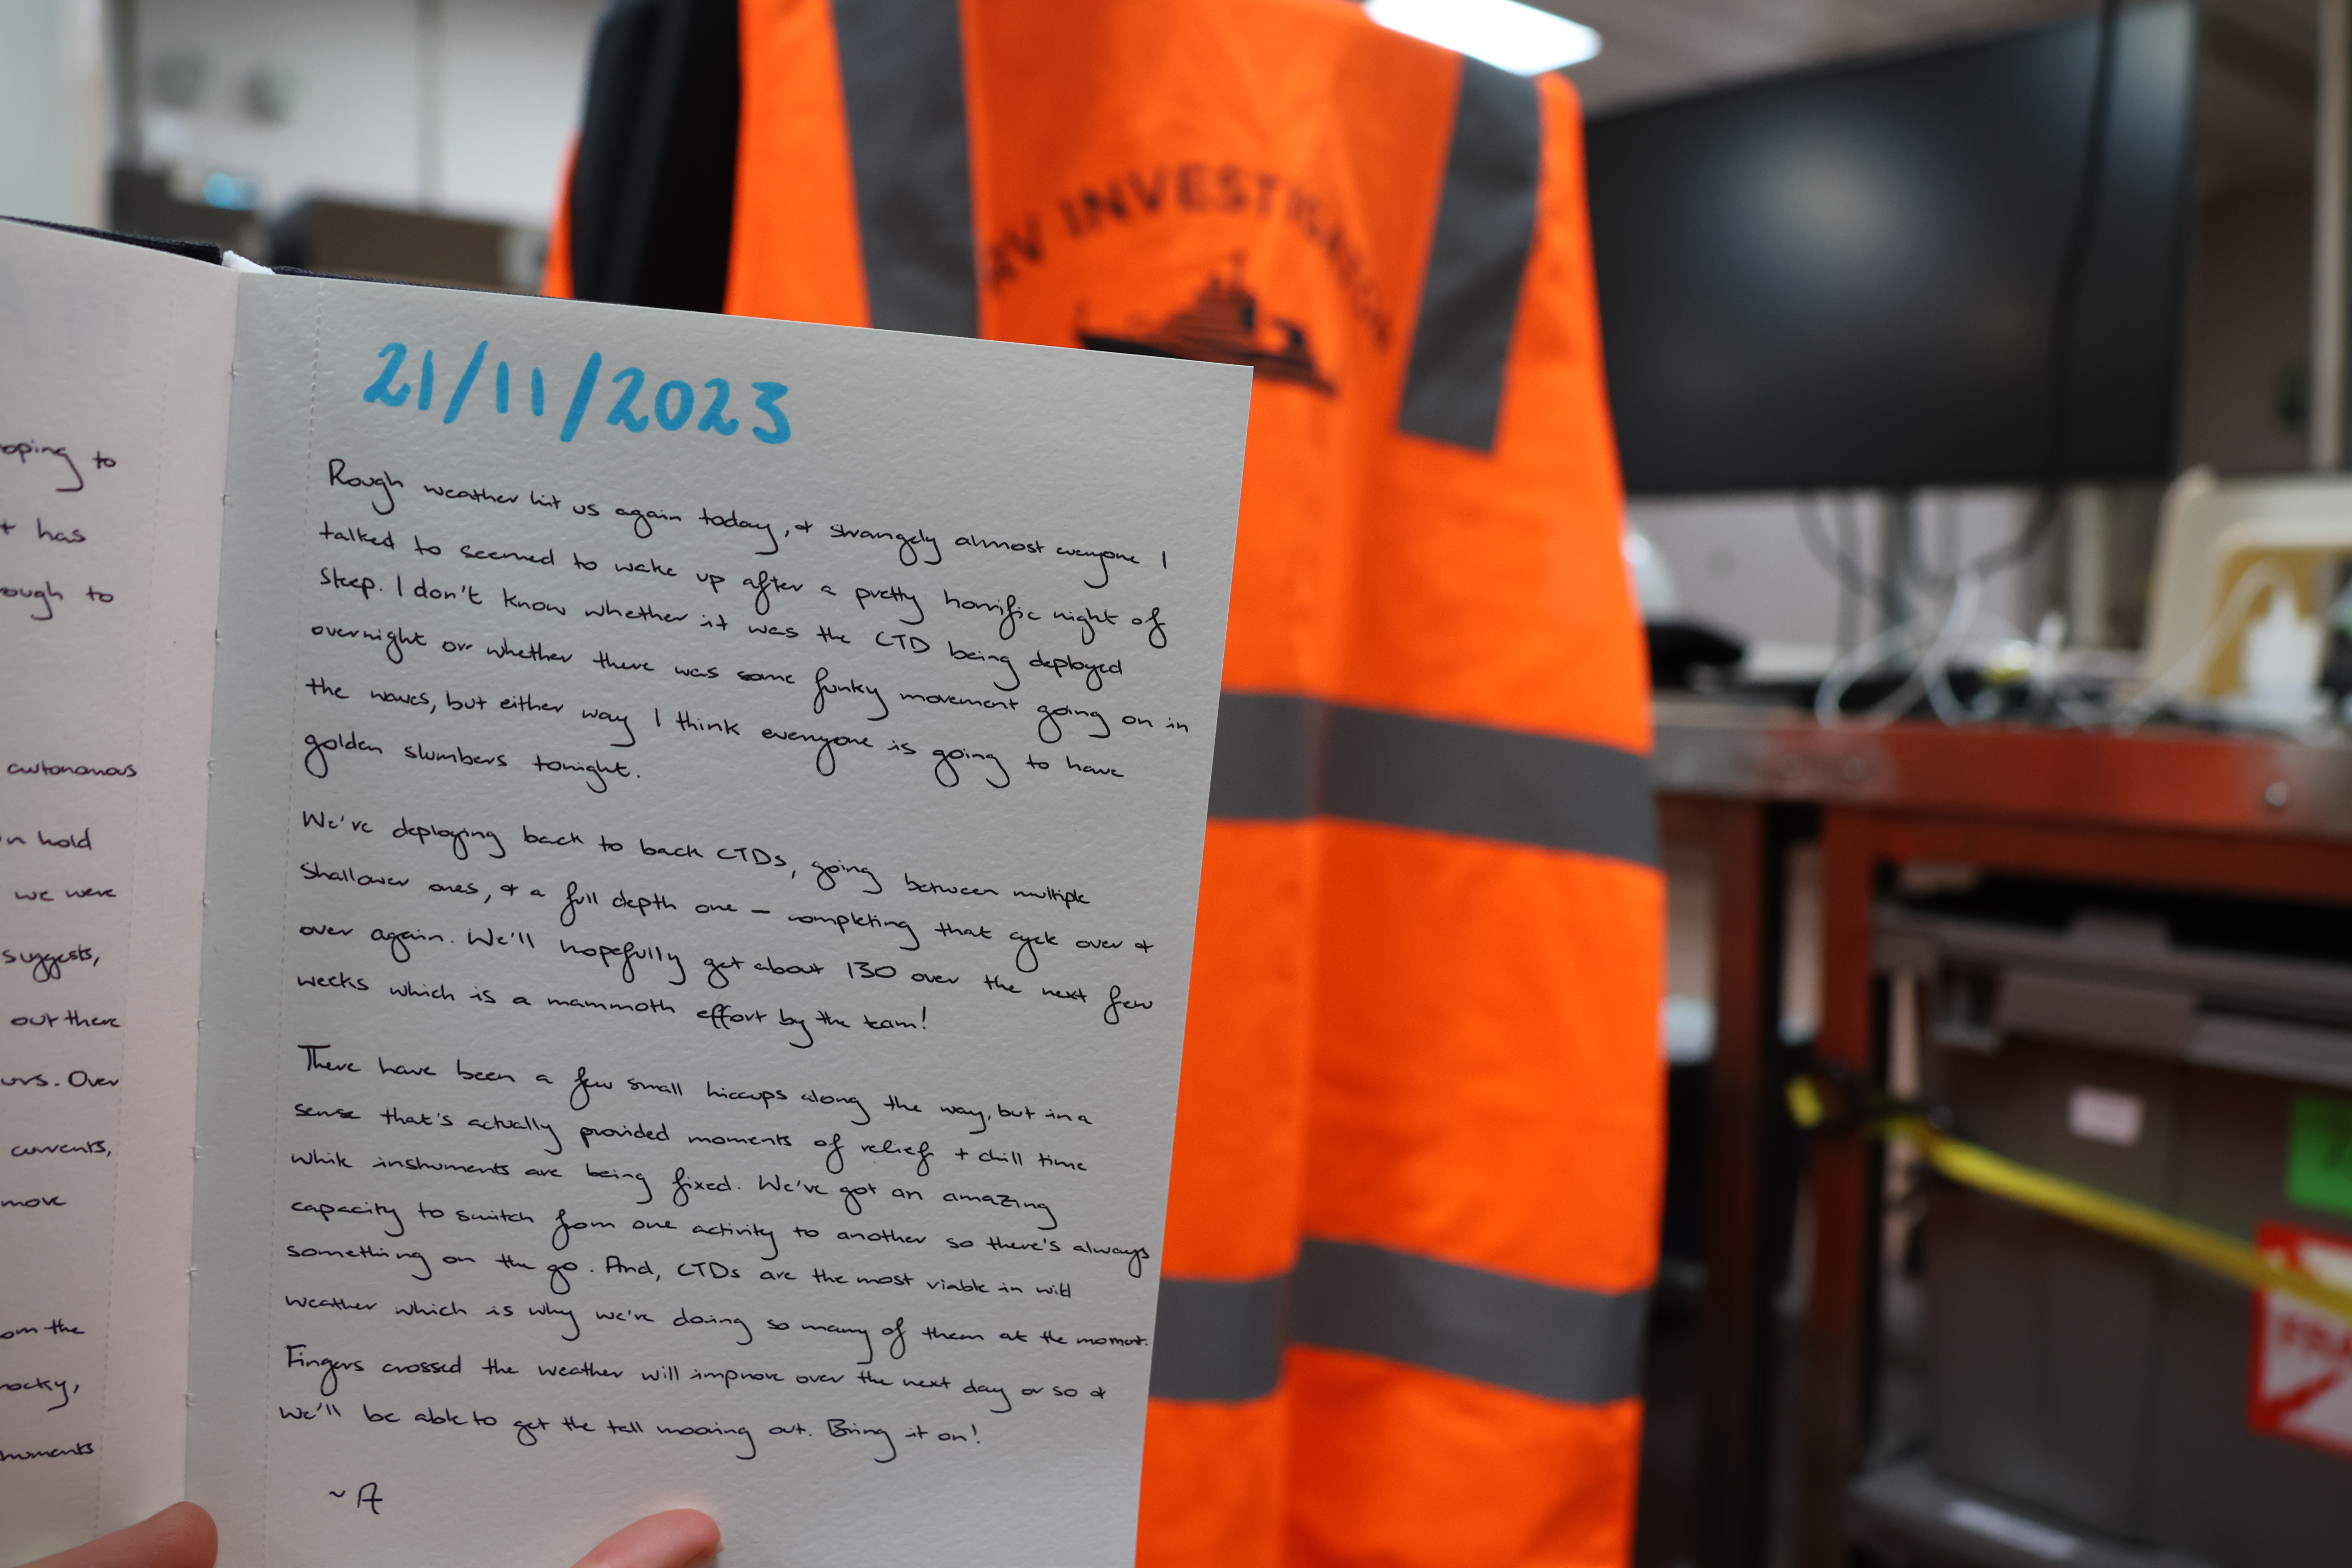 oping to
t has
ough to
autonomous
n hold
we were
suggests,
out there
urs. Over
currents,
move
om the
rocky,
ruments
21/11/2023
Rough weather hit us again today, & strangely almost everyone I
talked to seemed to wake up after a pretty horrific night of
sleep. I don't know whether it was the CTD being deployed
overnight or whether there was some funky movement going on in
the waves, but either way I think everyone is going to have
golden slumbers tonight.
We're deploying back to back CTDs, going between multiple
shallower ones, & a full depth one – completing that cycle over &
over again. We'll hopefully get about 130 over the next few
weeks which is a mammoth effort by the team!
There have been a few small hiccups along the way, but in a
sense that's actually provided moments of relief + chill time
while instruments are being fixed. We've got an amazing
capacity to switch from one activity to another so there's always
something on the go. And, CTDs are the most viable in wild
weather which is why we're doing so many of them at the moment.
Fingers crossed the weather will improve over the next day or so &
we'll be able to get the tall mooring out. Bring it on!
~ A
RV INVESTIGATOR